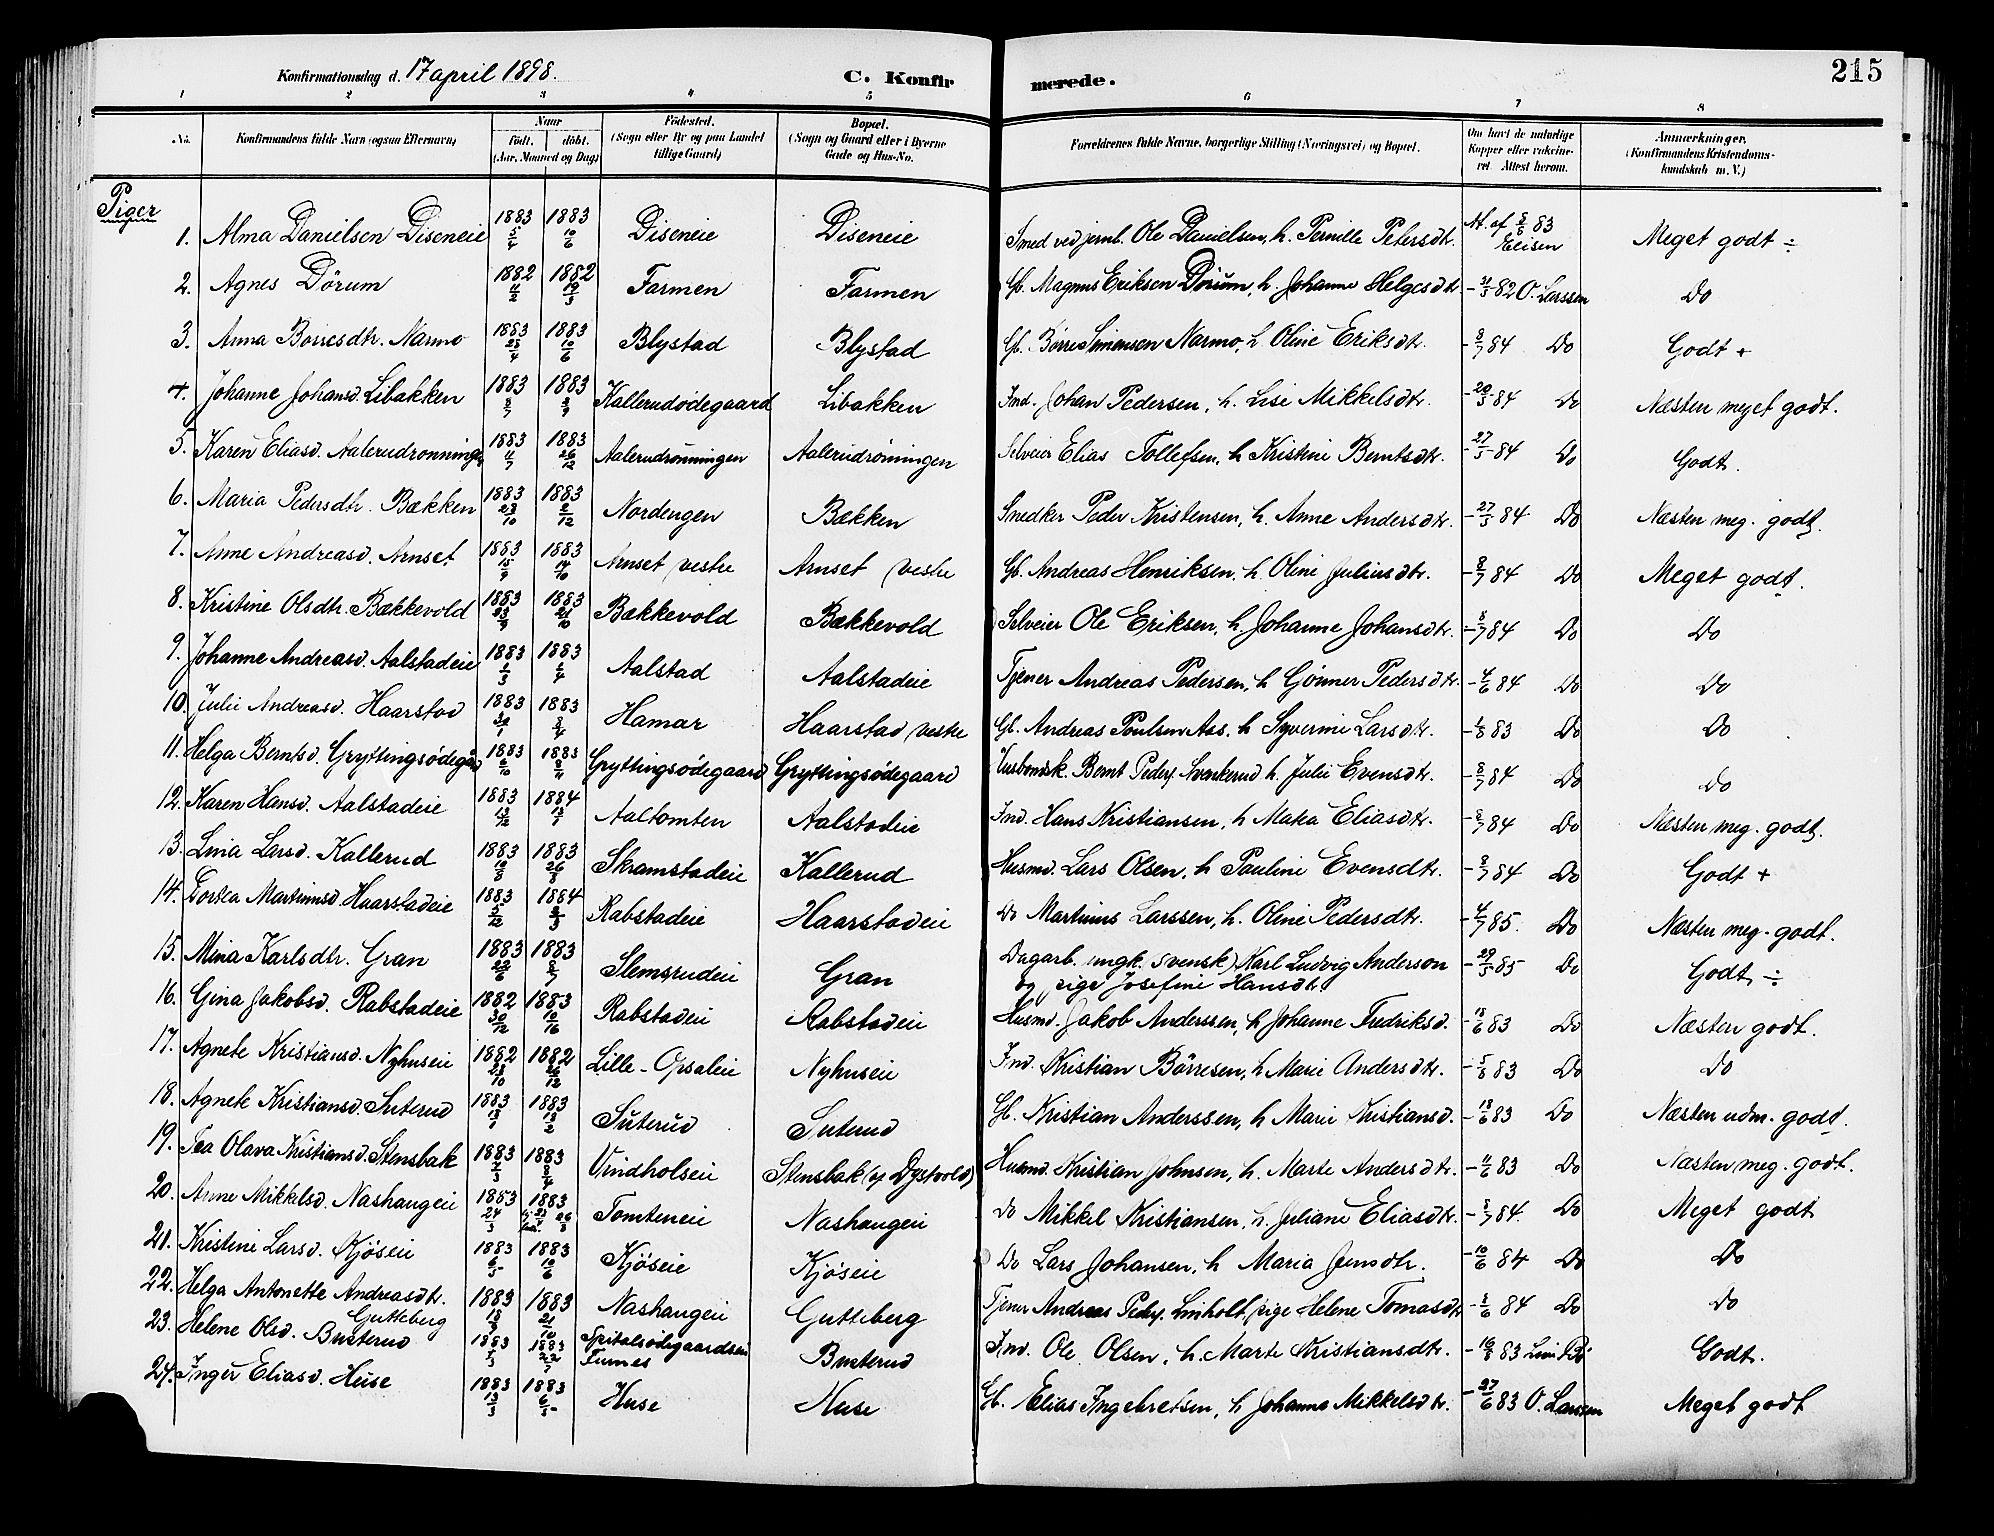 Konfirmationsdag d. 17 april 1898. C. Konfirmerede. 215
1 2 3 4 5 6 7 8
No. Konfirmandens fulde Navn (ogsaa Efternavn) Naar født. døbt. (Aar, Maaned og Dag) Fødested. (Sogn eller By og paa Landet tillige Gaard) Bopæl. (Sogn og Gaard eller i Byerne Gade og Hus-No. Forældrenes fulde Navne, borgerlige Stilling (Næringsvei) og Bopæl. Om havt de naturlige Kopper eller vakcineret. Attest herom. Anmærkninger. (Konfirmandens Kristendomskundskab m. V.)
Piger
1. Alma Danielsen Diseneie 1883 5/4 1883 10/6 Diseneie Diseneie Smed ved jernb. Ole Danielsen, h. Pernille Petersdtr. At. af 8/8 83 Eeisen Meget godt ÷
2. Agnes Dørum 1882 11/2 1882 19/3 Farmen Farmen Gb. Magnus Eriksen Dørum, h. Johanne Helgesdtr. 82 O. Larssen Do
3. Anna Børresdtr. Narmo 1883 28/4 1883 10/6 Blystad Blystad Gb. Børre Simensen Narmo, h. Oline Eriksdtr. - 8/7 84 Do Godt +
4. Johanne Johansd. Libakken 1883 8/7 1883 2/9 Kallerudødegaard Libakken Ind. Johan Pedersen, h. Lise Mikkelsdtr. - 20/5 84 Do Næsten meget godt.
5. Karen Eliasd. Aalerudrønningen 1883 11/7 1883 26/12 Aalerudrønningen Aalerudrønningen Selveier Elias Tollefsen, h. Kristine Berntsdtr. - 27/5 84 Do Godt.
6. Maria Pedersdtr. Bækken 1883 28/10 1883 2/12 Nordengen Bækken Snedker Peder Kristensen, h. Anne Andersdtr. - 27/5 84 Do Næsten meg. godt.
7. Anne Andreasd. Arnset 1883 15/9 1883 14/10 Arnset vestre Arnset vestre Gb. Andreas Henriksen, h. Oline Juliusdtr. - 8/7 84 Do Meget godt.
8. Kristine Olsdtr. Bækkevold 1883 23/9 1883 21/10 Bækkevold Bækkevold Selveier Ole Eriksen, h. Johanne Johansdtr. - 8/7 84 Do Do
9. Johanne Andreasd. Aalstadeie 1883 1883 Aalstad Aalstadeie Tjener Andreas Pedersen, h. Gønner Pedersdtr. - 4/6 84 Do Do
10. Julie Andreasd. Haarstad 1883 30/1 1883 8/4 Hamar Haarstad vestre Gb. Andreas Poulsen Aas, h. Syverine Larsdtr. 83 Do Do
11. Helga Berntsd. Gryttingsødegård 1883 6/10 1883 Gryttingsødegaard Gryttingsødegaard Husbondsk. Bernt Peders. Svenkerud h. Julie Evensdtr. - 8/7 84 Do Do
12. Karen Hansd. Aalstadeie 1883 13/12 1884 13/1 Aaltomten Aalstadeie Ind. Hans Kristiansen, h. Maka Eliasdtr. - 8/7 84 Do Næsten meg. godt.
13. Lina Larsd. Kallerud 1883 1883 26/8 Skramstadeie Kallerud Husmd. Lars Olsen, h. Pauline Evensdtr. - 8/7 84 Do Godt +
14. Dortea Martinusd. Haarstadeie 1883 5/12 1884 2/3 Rabstadeie Haarstadeie Do Martinus Larssen, h. Oline Pedersdtr. - 4/7 85. Do Næsten meg. godt.
15. Mina Karlsdtr. Gran 1883 22/6 1883 8/7 Slemsrudeie Gran Dagarb. (ungk. svensk) Karl Ludvig Anderson - 29/5 85 Do Godt ÷
og pige Josefine Hansdtr.
16. Gina Jakobsd. Rabstadeie 1882 30/12 1883 Rabstadeie Rabstadeie Husmd. Jakob Anderssen, h. Johanne Fredriksd. - 13/6 83 Do Næsten godt.
17. Agnete Kristiansd. Nyhuseie 1882 28/10 1882 26/12 Lille-Opsaleie Nyhuseie Ind. Kristian Børresen, h. Marie Andersdtr. 83 Do Do
18. Agnete Kristiansd. Suterud 1883 13/1 1883 13/2 Suterud Suterud Gb. Kristian Anderssen, h. Marie Kristiansd. - 13/6 83 Do Næsten udm. godt.
19. Tea Olava Kristiansd. Stensbak 1883 7/3 1883 8/4 Vindholseie Stensbak (u. Dystvold) Husmd. Kristian Johnsen, h. Marte Andersdtr. - 11/6 83 Do Næsten meg. godt.
20. Anne Mikkelsd. Nashaugeie 1883 24/3 1883 Tomteneie Nashaugeie Do Mikkel Kristiansen, h. Juliane Eliasdtr. - 8/7 84. Do Meget godt
21. Kristine Larsd. Kjøseie 1883 6/5 1883 10/6 Kjøseie Kjøseie Do Lars Johansen, h. Maria Jensdtr. - 10/6 84 Do Do
22. Helga Antonette Andreasdtr. Gutteberg 1883 18/9 1883 21/10 Nashaugeie Gutteberg Tjener Andreas Peders. Linholt, pige Helene Tomasdtr. 84 Do Do
23. Helene Olsd. Busterud 1883 1883 22/7 Spitalsødegaardseie Furnes Busterud Ind. Ole Olsen, h. Marte Kristiansdtr. 83 Godt.
24. Inger Eliasd. Huse 1883 13/3 1883 6/5 Huse Huse Gb. Elias Ingebretsen, h. Johanne Mikkelsdtr. - 27/6 83 O. Larssen Meget godt